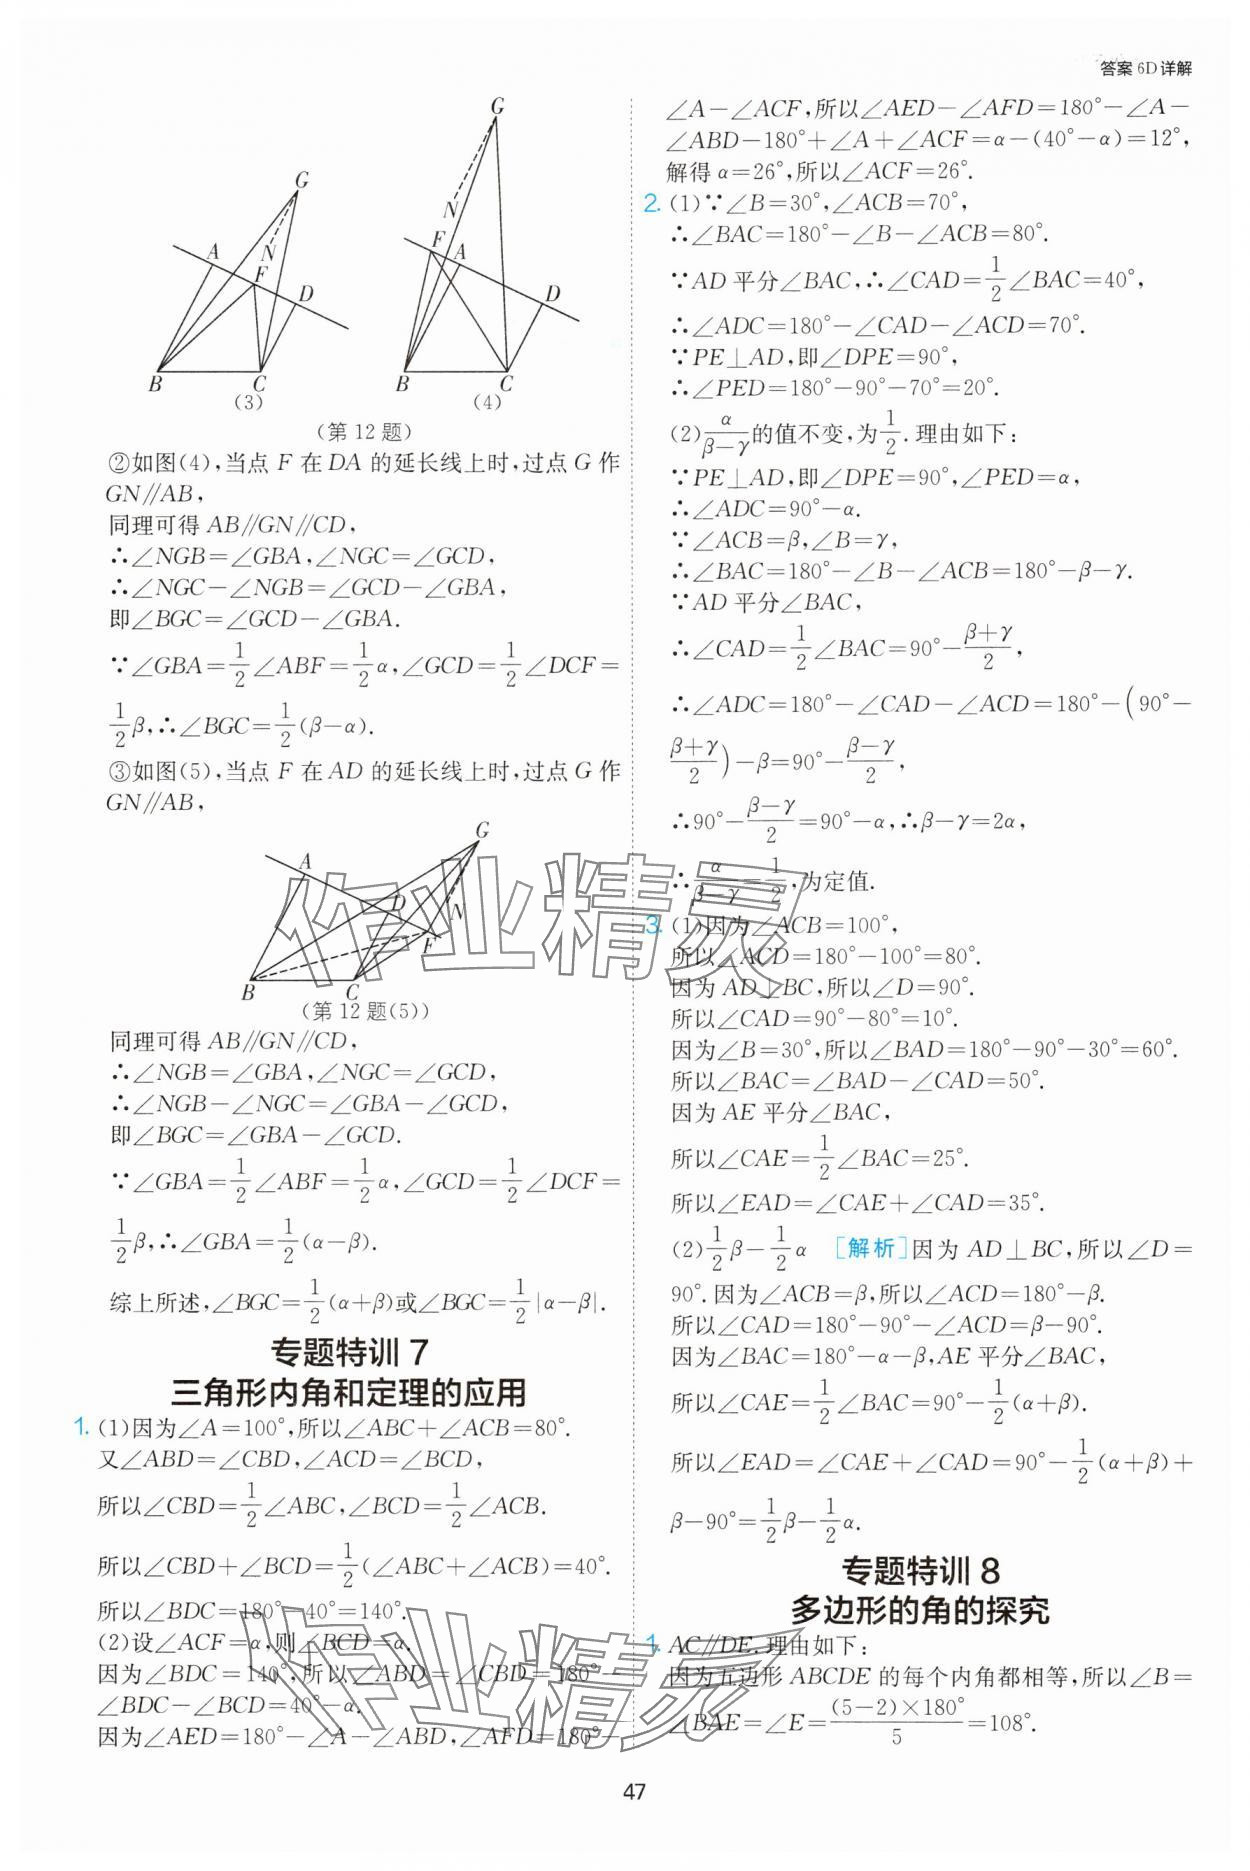 答案 6D 详解
G
A
N
F
D
B
C
(3)
G
N
F
A
D
B
C
(4)
(第 12 题)
②如图(4),当点 F 在 DA 的延长线上时,过点 G 作
GN∥AB,
同理可得 AB∥GN∥CD,
∴∠NGB=∠GBA,∠NGC=∠GCD,
∴∠NGC-∠NGB=∠GCD-∠GBA,
即∠BGC=∠GCD-∠GBA.
∵∠GBA=1/2∠ABF=1/2α,∠GCD=1/2∠DCF=
1/2β,∴∠BGC=1/2(β-α).
③如图(5),当点 F 在 AD 的延长线上时,过点 G 作
GN∥AB,
G
A
D
N
F
B
C
(第 12 题(5))
同理可得 AB∥GN∥CD,
∴∠NGB=∠GBA,∠NGC=∠GCD,
∴∠NGB-∠NGC=∠GBA-∠GCD,
即∠BGC=∠GBA-∠GCD.
∵∠GBA=1/2∠ABF=1/2α,∠GCD=1/2∠DCF=
1/2β,∴∠GBA=1/2(α-β).
综上所述,∠BGC=1/2(α+β)或∠BGC=1/2|α-β|.
专题特训 7
三角形内角和定理的应用
1. (1)因为∠A=100°,所以∠ABC+∠ACB=80°.
又∠ABD=∠CBD,∠ACD=∠BCD,
所以∠CBD=1/2∠ABC,∠BCD=1/2∠ACB.
所以∠CBD+∠BCD=1/2(∠ABC+∠ACB)=40°.
所以∠BDC=180°-40°=140°.
(2)设∠ACF=α,则∠BCD=α.
因为∠BDC=140°,所以∠ABD=∠CBD=180°-
∠BDC-∠BCD=40°-α.
因为∠AED=180°-∠A-∠ABD,∠AFD=180°-
∠A-∠ACF,所以∠AED-∠AFD=180°-∠A-
∠ABD-180°+∠A+∠ACF=α-(40°-α)=12°,
解得 α=26°,所以∠ACF=26°.
2. (1)∵∠B=30°,∠ACB=70°,
∴∠BAC=180°-∠B-∠ACB=80°.
∵AD 平分∠BAC,∴∠CAD=1/2∠BAC=40°,
∴∠ADC=180°-∠CAD-∠ACD=70°.
∵PE⊥AD,即∠DPE=90°,
∴∠PED=180°-90°-70°=20°.
(2)α/(β-γ)的值不变,为1/2.理由如下:
∵PE⊥AD,即∠DPE=90°,∠PED=α,
∴∠ADC=90°-α.
∵∠ACB=β,∠B=γ,
∴∠BAC=180°-∠B-∠ACB=180°-β-γ.
∵AD 平分∠BAC,
∴∠CAD=1/2∠BAC=90°-(β+γ)/2,
∴∠ADC=180°-∠CAD-∠ACD=180°-(90°-
(β+γ)/2)-β=90°-(β-γ)/2,
∴90°-(β-γ)/2=90°-α,∴β-γ=2α,
∴α/(β-γ)=1/2,为定值.
3. (1)因为∠ACB=100°,
所以∠ACD=180°-100°=80°.
因为 AD⊥BC,所以∠D=90°.
所以∠CAD=90°-80°=10°.
因为∠B=30°,所以∠BAD=180°-90°-30°=60°.
所以∠BAC=∠BAD-∠CAD=50°.
因为 AE 平分∠BAC,
所以∠CAE=1/2∠BAC=25°.
所以∠EAD=∠CAE+∠CAD=35°.
(2)1/2β-1/2α [解析]因为 AD⊥BC,所以∠D=
90°.因为∠ACB=β,所以∠ACD=180°-β.
所以∠CAD=180°-90°-∠ACD=β-90°.
因为∠BAC=180°-α-β,AE 平分∠BAC,
所以∠CAE=1/2∠BAC=90°-1/2(α+β).
所以∠EAD=∠CAE+∠CAD=90°-1/2(α+β)+
β-90°=1/2β-1/2α.
专题特训 8
多边形的角的探究
1. AC∥DE.理由如下:
因为五边形 ABCDE 的每个内角都相等,所以∠B=
∠BAE=∠E=(5-2)×180°/5=108°.
47
作业精灵
作业精灵